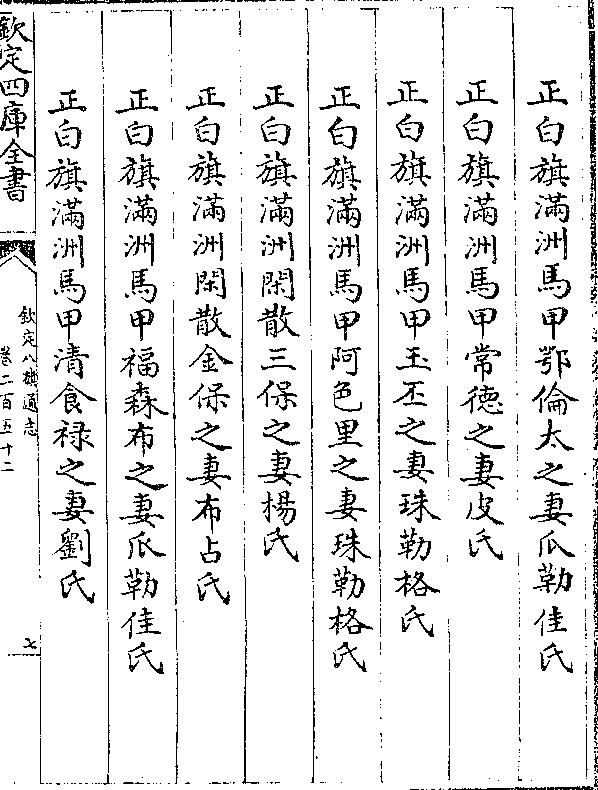 正白旗滿洲馬甲鄂倫太之妻瓜勒佳氏
正白旗滿洲馬甲常德之妻皮氏
正白旗滿洲馬甲玉丕之妻珠勒格氏
正白旗滿洲馬甲阿色里之妻珠勒格氏
正白旗滿洲閑散三保之妻楊氏
正白旗滿洲閑散金保之妻布占氏
正白旗滿洲馬甲福森布之妻瓜勒佳氏
正白旗滿洲馬甲清食祿之妻劉氏
欽定四庫全書
欽定八旗通志
卷二百五十二
七